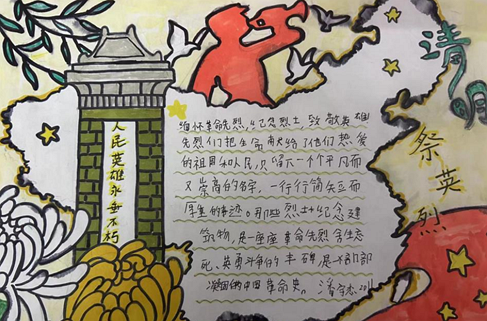 清明
祭英烈
人民英雄永垂不朽
缅怀革命先烈，纪念烈士，致敬英雄
先烈们把生命献给了他们热爱
的祖国和人民，只留下一个个平凡而
又崇高的名字，一行行简短而
厚重的事迹。那些烈士纪念建
筑物，是一座座革命先烈舍生忘
死、英勇斗争的丰碑，是一部部
凝固的中国革命史。